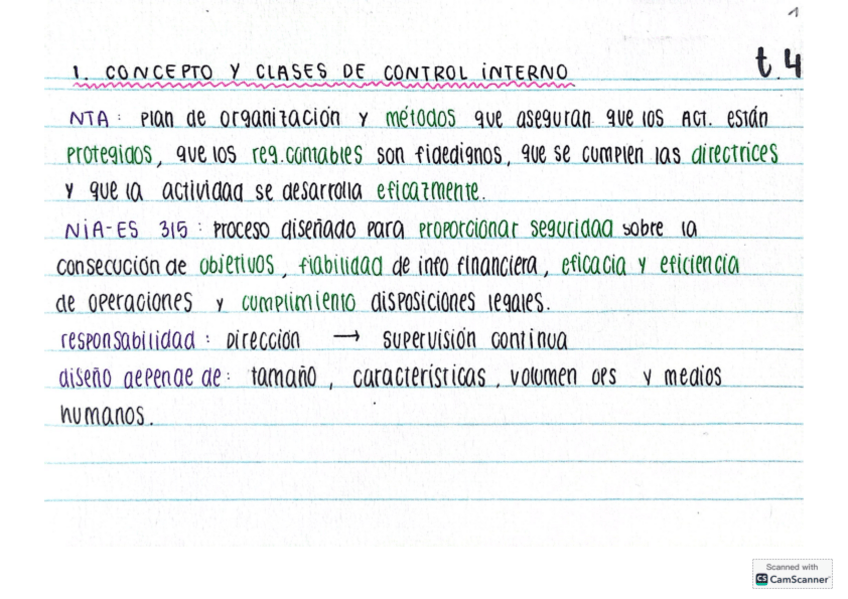 1
t.4
1. CONCEPTO Y CLASES DE CONTROL INTERNO
NTA: Plan de organización y métodos que aseguran que los Act. están
protegidos, que los reg.contables son fidedignos, que se cumplen las directrices
y que la actividad se desarrolla eficazmente.
NIA-ES 315: Proceso diseñado para proporcionar seguridad sobre la
consecución de objetivos, fiabilidad de info financiera, eficacia y eficiencia
de operaciones y cumplimiento disposiciones legales.
responsabilidad: Dirección → supervisión continua
diseño depende de: tamaño, características, volumen ops y medios
humanos.
Scanned with
CS CamScanner